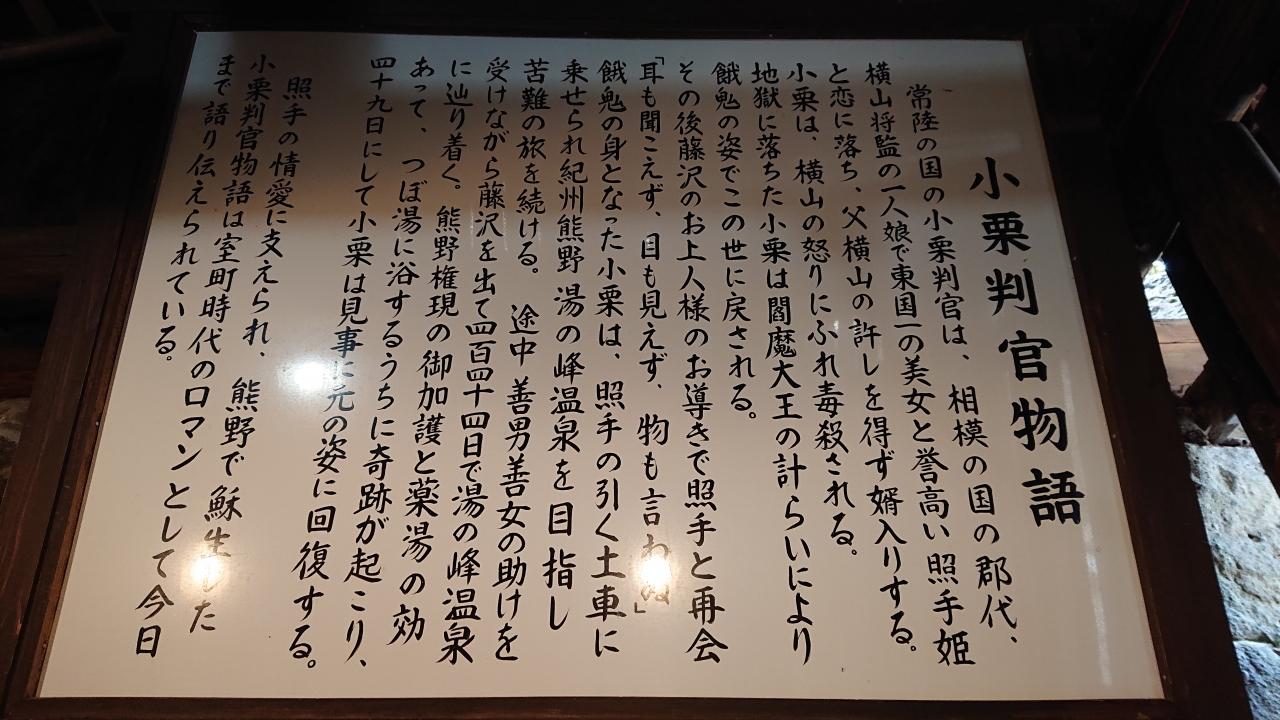 小栗判官物語
常陸の国の小栗判官は、相模の国の郡代、
横山将監の一人娘で東国一の美女と誉高い照手姫
と恋に落ち、父横山の許しを得ず婿入りする。
小栗は、横山の怒りにふれ毒殺される。
地獄に落ちた小栗は閻魔大王の計らいにより
餓鬼の姿でこの世に戻される。
その後藤沢のお上人様のお導きで照手と再会
「耳も聞こえず、目も見えず、物も言わぬ」
餓鬼の身となった小栗は、照手の引く土車に
乗せられ紀州熊野湯の峰温泉を目指し
苦難の旅を続ける。途中善男善女の助けを
受けながら藤沢を出て四百四十四日で湯の峰温泉
に辿り着く。熊野権現の御加護と薬湯の効
あって、つぼ湯に浴するうちに奇跡が起こり、
四十九日にして小栗は見事に元の姿に回復する。
照手の情愛に支えられ、熊野で蘇生した
小栗判官物語は室町時代のロマンとして今日
まで語り伝えられている。